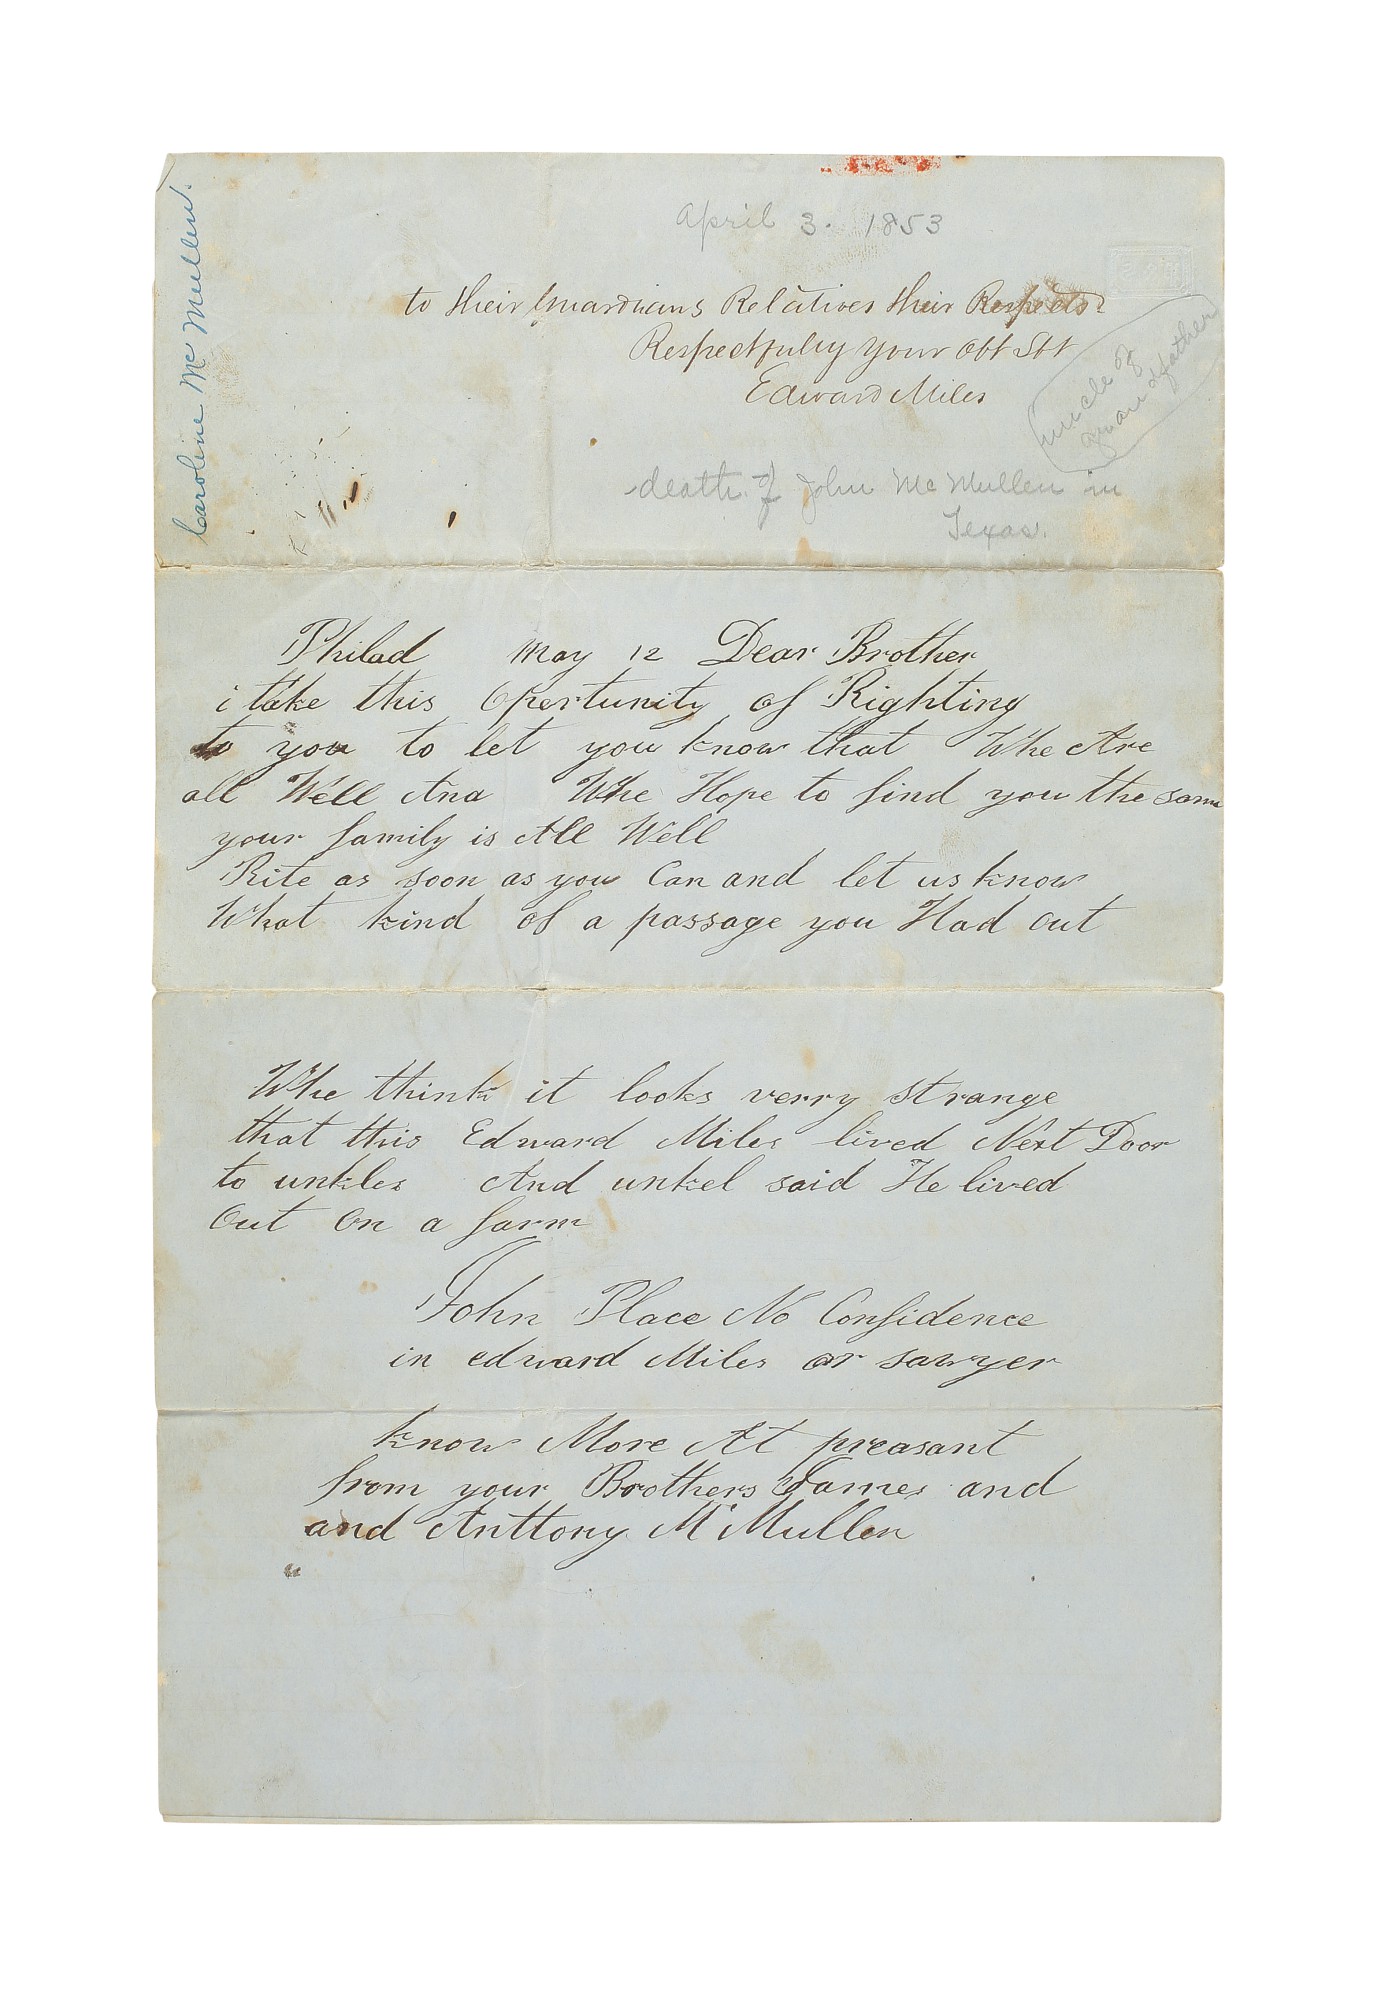 Caroline Mc Mullen.
April 3. 1853
to their Guardians Relatives their Respects
Respectfully your Obt Sbt
Edward Miles
uncle of
grandfather
death of John Mc Mullen in
Texas.
Philad May 12 Dear Brother
i take this Opertunity of Righting
to you to let you know that Whe Are
all Well And Whe Hope to find you the same
your family is All Well
Rite as soon as you Can and let us know
What kind of a passage you Had out
Whe think it looks verry strange
that this Edward Miles lived Next Door
to unkles And unkel said He lived
out on a farm
John Place No Confidence
in edward Miles or sawyer
know More At preasant
from your Brothers James and
and Anttony Mc Mullen